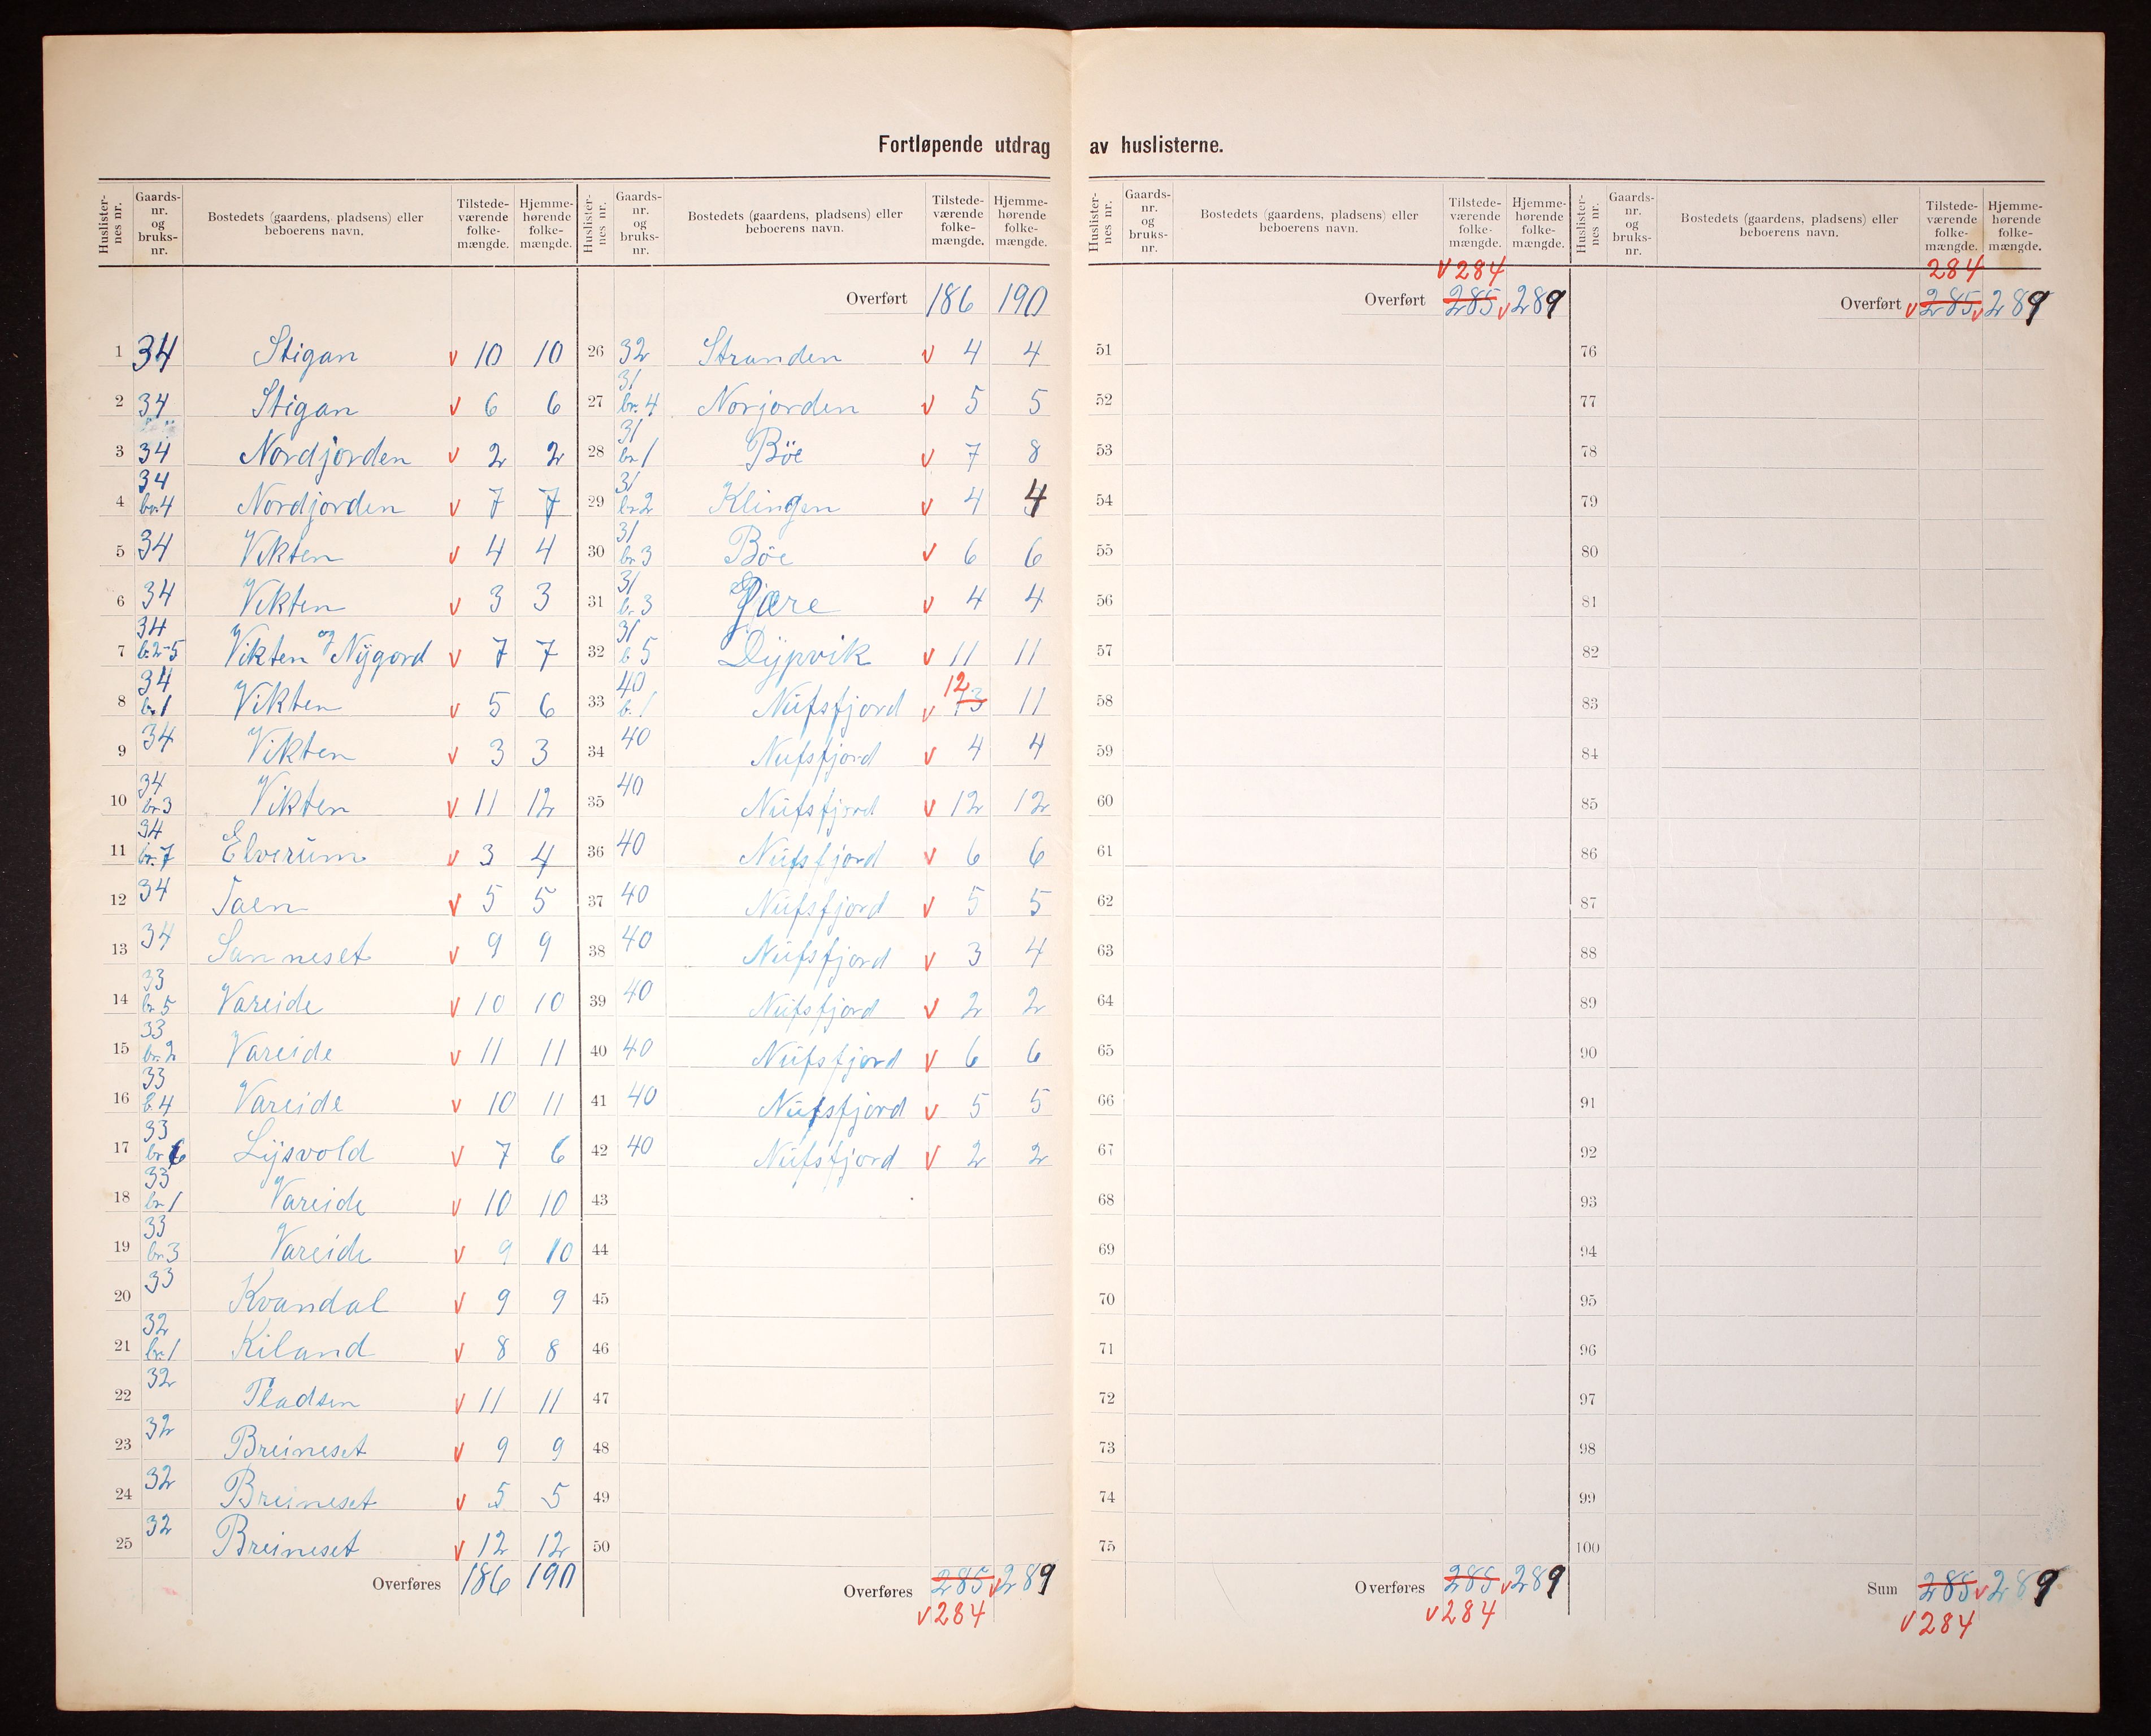 Fortløpende utdrag av huslisterne.
Huslister-nes nr. Gaards-nr. og bruks-nr. Bostedets (gaardens, pladsens) eller beboerens navn. Tilstede-værende folke-mængde. Hjemme-hørende folke-mængde.
1 34 Stigan v 10 10
2 34 Stigan v 6 6
3 34 Nordjorden v 2 2
4 34 br. 4 Nordjorden v 7 7
5 34 Vikten v 4 4
6 34 Vikten v 3 3
7 34 b. 2-5 Vikten og Nygord v 7 7
8 34 br. 1 Vikten v 5 6
9 34 Vikten v 3 3
10 34 br. 3 Vikten v 11 12
11 34 br. 7 Elverum v 3 4
12 34 Taen v 5 5
13 34 Sanneset v 9 9
14 33 br. 5 Vareide v 10 10
15 33 br. 2 Vareide v 11 11
16 33 b. 4 Vareide v 10 11
17 33 br 6 Lysvold v 7 6
18 33 br. 1 Vareide v 10 10
19 33 br. 3 Vareide v 9 10
20 33 Kvandal v 9 9
21 32 br. 1 Kiland v 8 8
22 32 Pladsen v 11 11
23 32 Breineset v 9 9
24 32 Breineset v 5 5
25 32 Breineset v 12 12
Overføres 186 190
Huslister-nes nr. Gaards-nr. og bruks-nr. Bostedets (gaardens, pladsens) eller beboerens navn. Tilstede-værende folke-mængde. Hjemme-hørende folke-mængde.
Overført 186 190
26 32 Stranden v 4 4
27 31 br. 4 Norjorden v 5 5
28 31 br. 1 Böe v 7 8
29 31 br. 2 Klingen v 4 4
30 31 br. 3 Böe v 6 6
31 31 b. 3 v 4 4
32 31 b 5 Dypvik v 11 11
33 40 b. 1 Nufsfjord v 12 13 11
34 40 Nufsfjord v 4 4
35 40 Nufsfjord v 12 12
36 40 Nufsfjord v 6 6
37 40 Nufsfjord v 5 5
38 40 Nufsfjord v 3 4
39 40 Nufsfjord v 2 2
40 40 Nufsfjord v 6 6
41 40 Nufsfjord v 5 5
42 40 Nufsfjord v 2 2
43
44
45
46
47
48
49
50
Overføres 285 v 289
v 284
Huslister-nes nr. Gaards-nr. og bruks-nr. Bostedets (gaardens, pladsens) eller beboerens navn. Tilstede-værende folke-mængde. Hjemme-hørende folke-mængde.
v 284
Overført 285 v 289
51
52
53
54
55
56
57
58
59
60
61
62
63
64
65
66
67
68
69
70
71
72
73
74
75
Overføres 285 v 289
v 284
Huslister-nes nr. Gaards-nr. og bruks-nr. Bostedets (gaardens, pladsens) eller beboerens navn. Tilstede-værende folke-mængde. Hjemme-hørende folke-mængde.
284
Overført v 285 v 289
76
77
78
79
80
81
82
83
84
85
86
87
88
89
90
91
92
93
94
95
96
97
98
99
100
Sum 285 v 289
v 284